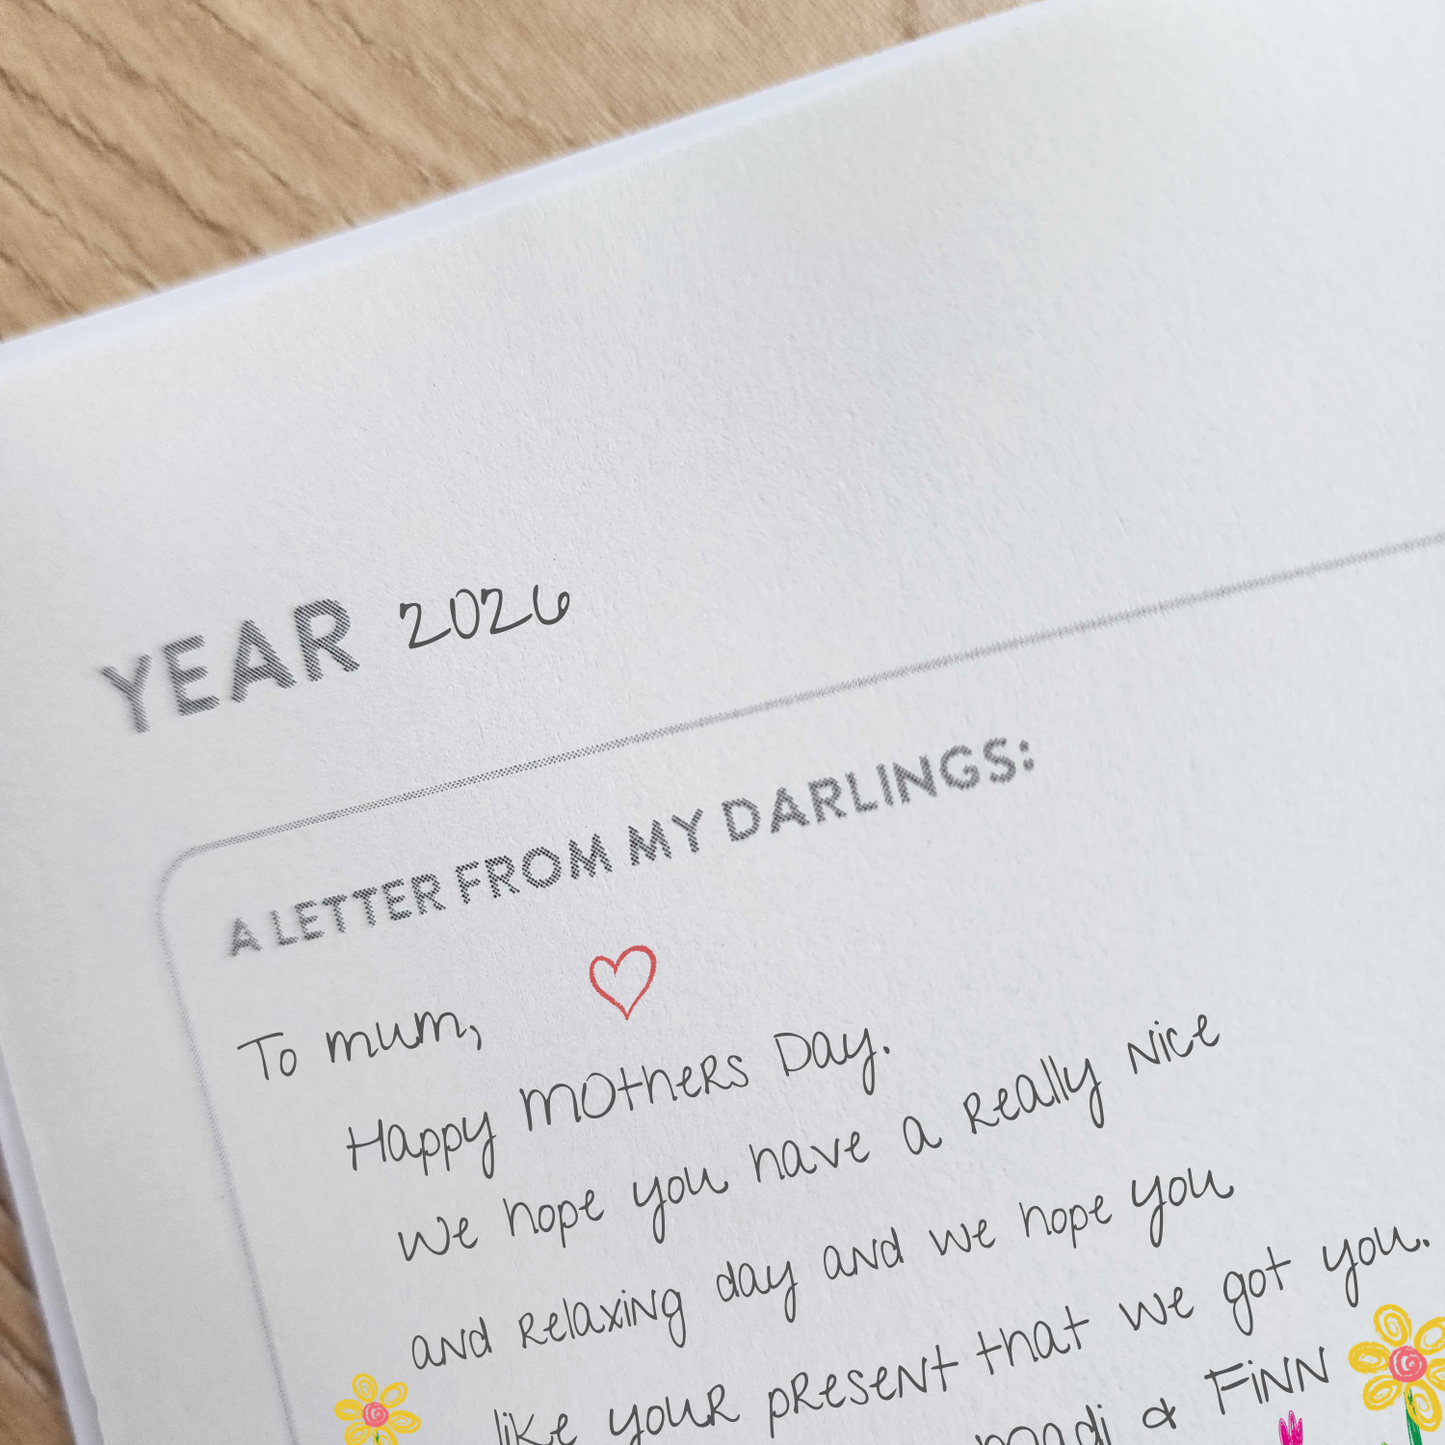 YEAR 2026
A LETTER FROM MY DARLINGS:
To mum,
Happy Mothers Day.
We hope you have a really nice
and relaxing day and we hope you
like your present that we got you.
madi & Finn